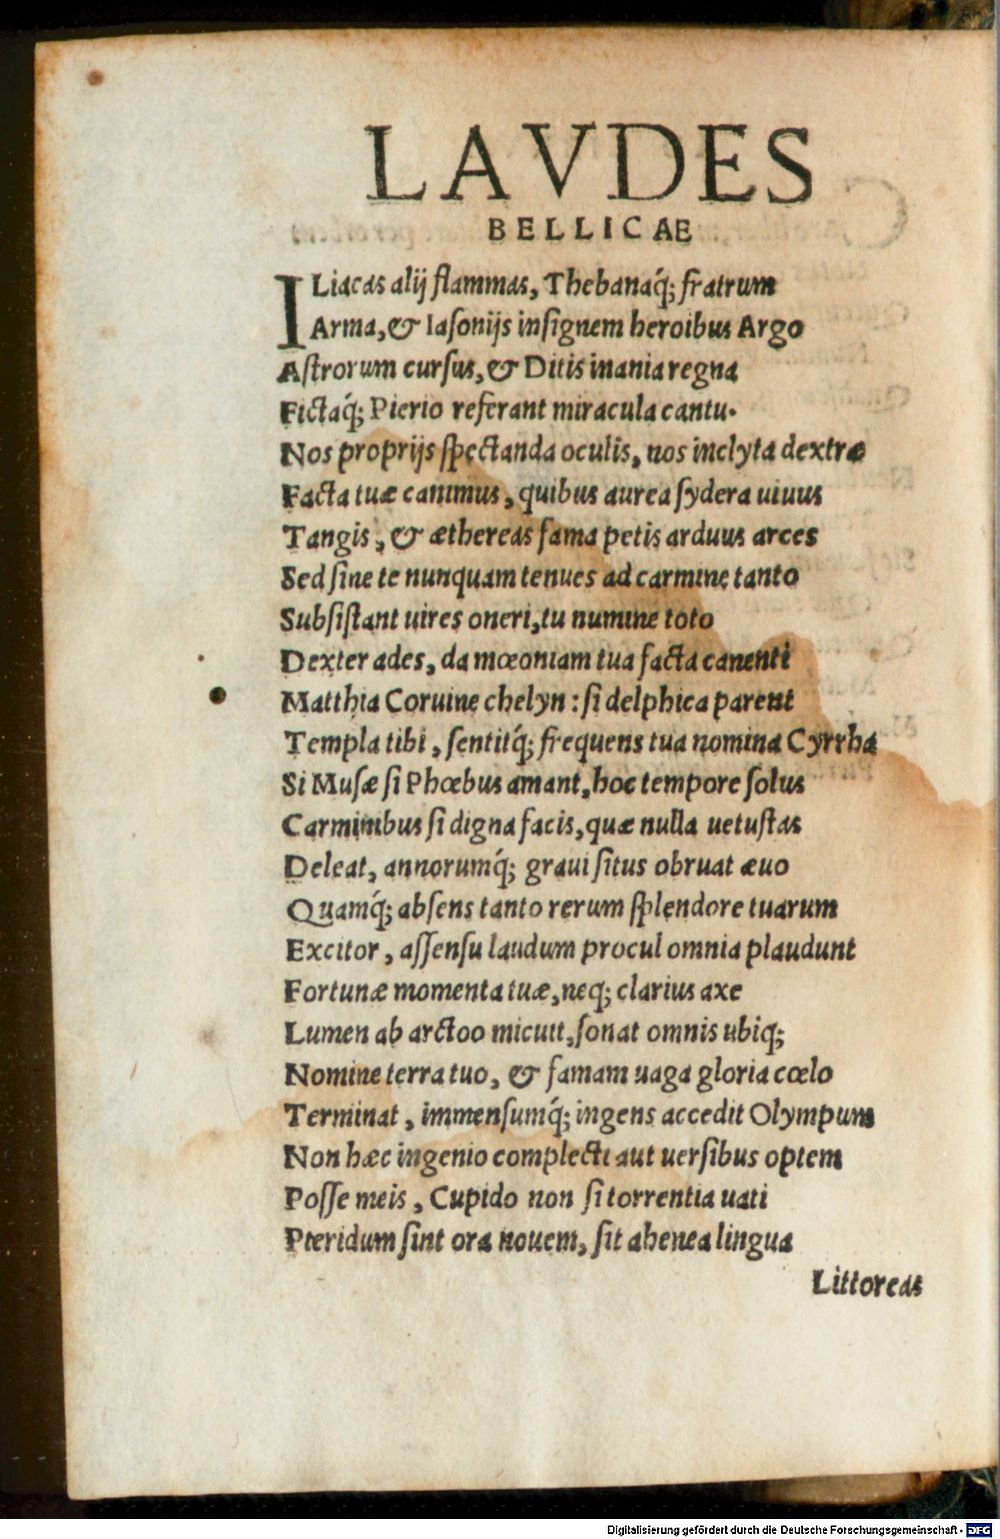 LAVDES
BELLICAE
ILiacas alij flammas, Thebanaq́; fratrum
Arma, & Iasonijs insignem heroibus Argo
Astrorum cursus, & Ditis inania regna
Fictaq́; Pierio referant miracula cantu.
Nos proprijs spectanda oculis, nos inclyta dextræ
Facta tuæ canimus, quibus aurea sydera uiuus
Tangis, & æthereas fama petis arduus arces
Sed sine te nunquam tenues ad carmine tanto
Subsistant uires oneri, tu numine toto
Dexter ades, da mœoniam tua facta canenti
Matthia Coruine chelyn: si delphica parent
Templa tibi, sentitq́; frequens tua nomina Cyrrha
Si Musæ si Phœbus amant, hoc tempore solus
Carminibus si digna facis, quæ nulla uetustas
Deleat, annorumq́; graui situs obruat æuo
Quamq́; absens tanto rerum splendore tuarum
Excitor, assensu laudum procul omnia plaudunt
Fortunæ momenta tuæ, neq; clarius axe
Lumen ab arctoo micuit, sonat omnis ubiq;
Nomine terra tuo, & famam uaga gloria cœlo
Terminat, immensumq́; ingens accedit Olympum
Non hæc ingenio complecti aut uersibus optem
Posse meis, Cupido non si torrentia uati
Pieridum sint ora nouem, sit ahenea lingua
Littoreas
Digitalisierung gefördert durch die Deutsche Forschungsgemeinschaft - DFG